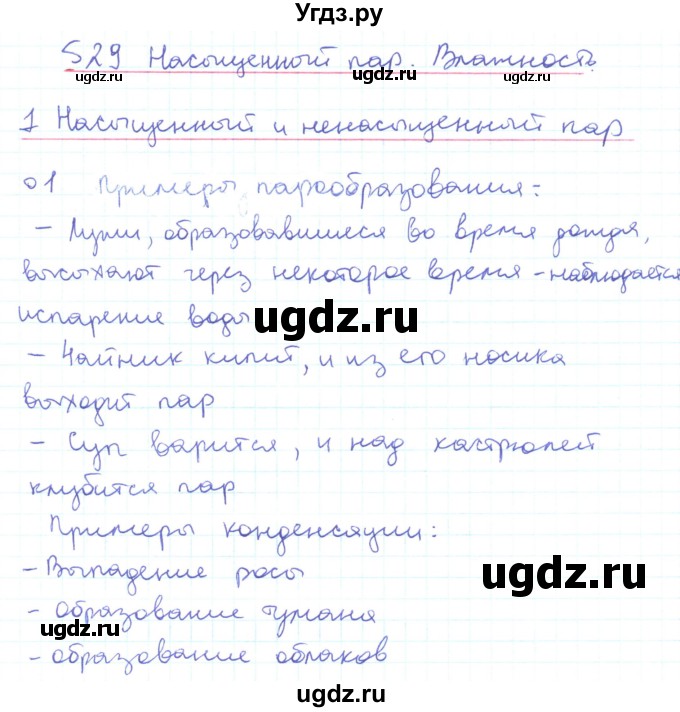 Угдз.ру
§29 Насыщенный пар. Влажность
ugdz.ru ugdz.ru ugdz.ru
1 Насыщенный и ненасыщенный пар
ugdz.ru ugdz.ru
о1 Примеры парообразования:
- Лужи, образовавшиеся во время дождя,
высыхают через некоторое время - наблюдается
испарение воды
ugdz.ru
- Чайник кипит, и из его носика
выходит пар
- Суп варится, и над кастрюлей
клубится пар
Примеры конденсации:
- Выпадение росы
ugdz.ru
- Образование тумана
ugdz.ru
- образование облаков
ugdz.ru